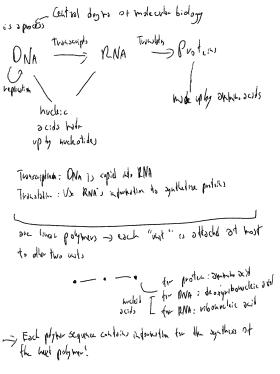 Central dogma of molecular biology
is a process
Transcripts
Translates
DNA
RNA
Proteins
replication
nucleic
acids both
up by nucleotides
made up by amino acids
Transcription: DNA is copied into RNA
Translation: Use RNA's information to synthetise proteins
are linear polymers → each "unit" is attached at most
to other two units
for protein: amino acid
nucleic
acids
for DNA: deoxyribonucleic acid
for RNA: ribonucleic acid
→ Each polymer sequence contains information for the synthesis of
the next polymer!